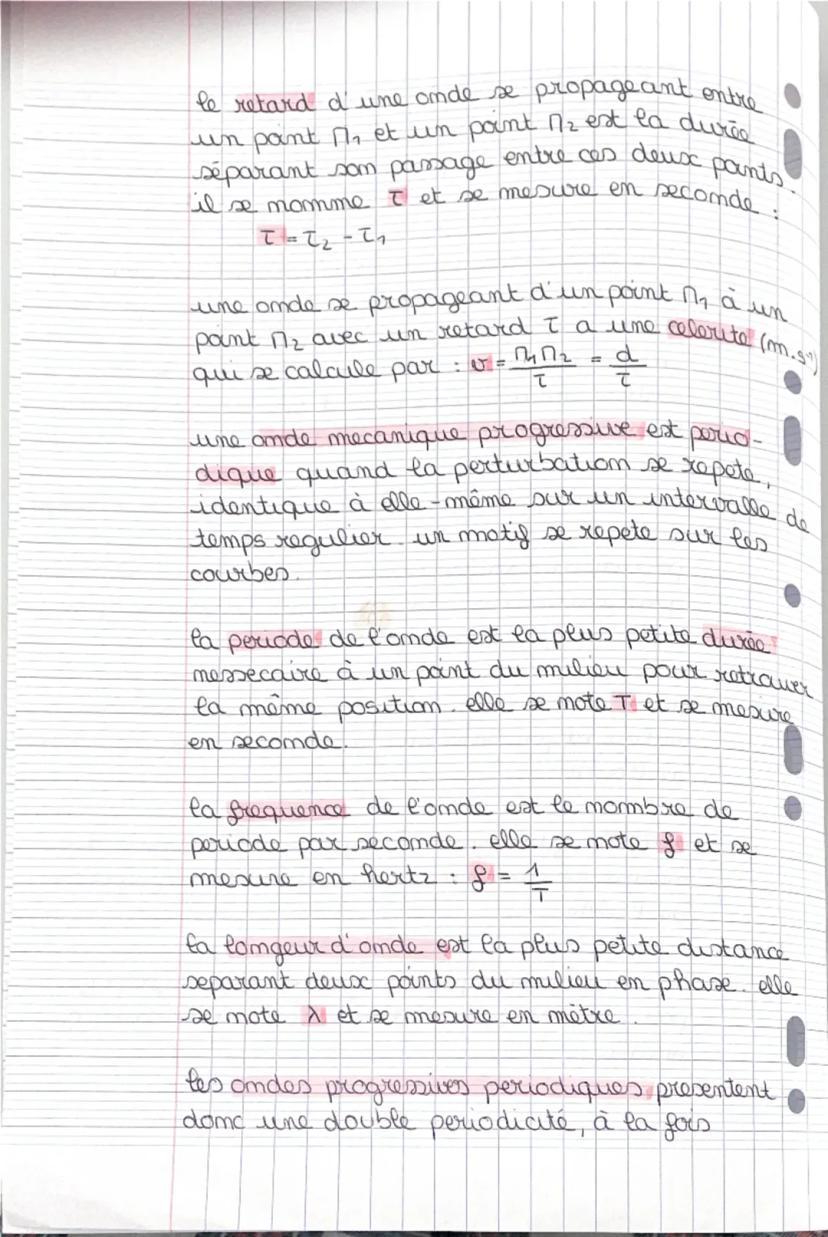 le retard d'une onde se propageant entre
un point M₁ et un point M₂ est la durée
séparant son passage entre ces deux points.
il se nomme τ et se mesure en seconde :
τ = τ₂ - τ₁
une onde se propageant d'un point M₁ à un
point M₂ avec un retard τ a une celerite (m.s⁻¹)
qui se calcule par : v = M₁M₂/τ = d/τ
une onde mecanique progressive est perio-
dique quand la perturbation se repete,
identique à elle-même sur un intervalle de
temps regulier. un motif se repete sur les
courbes.
la periode de l'onde est la plus petite durée
nessecaire à un point du milieu pour retrouver
la même position. elle se note T et se mesure
en seconde.
la frequence de l'onde est le nombre de
periode par seconde. elle se note f et se
mesure en hertz : f = 1/T
la longeur d'onde est la plus petite distance
separant deux points du milieu en phase. elle
se note λ et se mesure en mètre.
les ondes progressives periodiques presentent
donc une double periodicité, à la fois